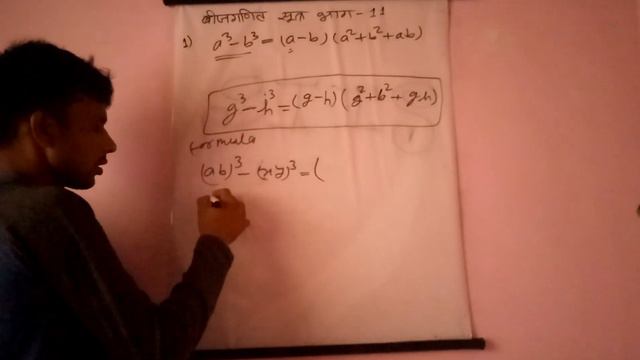 बीजगणित सूत्र भाग - 11
1) a³-b³ = (a-b) (a²+b²+ab)
g³-h³=(g-h) (g²+b²+gh)
formula
(ab)³- (xy)³ = (